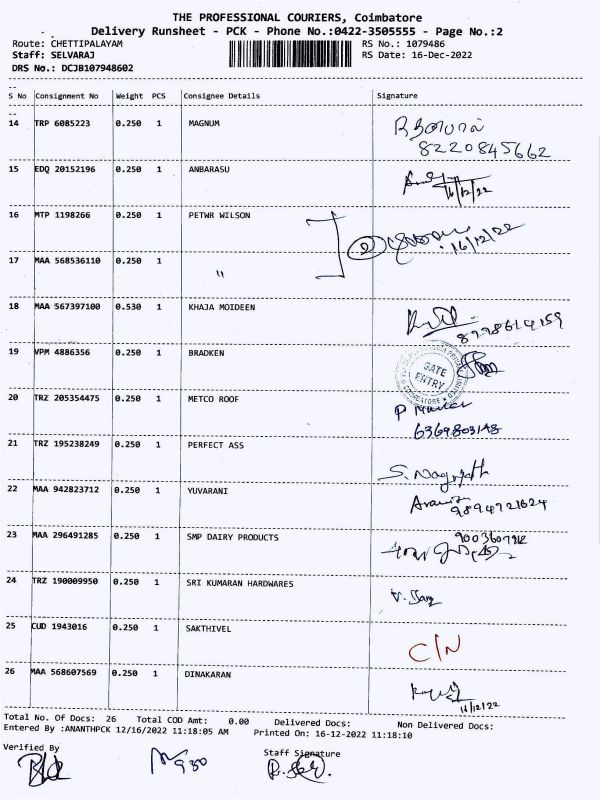 THE PROFESSIONAL COURIERS, Coimbatore
Delivery Runsheet - PCK - Phone No.:0422-3505555 - Page No.:2
Route: CHETTIPALAYAM RS No.: 1079486
Staff: SELVARAJ RS Date: 16-Dec-2022
DRS No.: DCJB107948602
S No Consignment No Weight PCS Consignee Details Signature
14 TRP 6085223 0.250 1 MAGNUM
8220845662
15 EDQ 20152196 0.250 1 ANBARASU
16/12/22
16 MTP 1198266 0.250 1 PETWR WILSON
2 16/12/22
17 MAA 568536110 0.250 1 "
18 MAA 567397100 0.530 1 KHAJA MOIDEEN
19 VPM 4886356 0.250 1 BRADKEN
GATE ENTRY
20 TRZ 205354475 0.250 1 METCO ROOF
6369803148
21 TRZ 195238249 0.250 1 PERFECT ASS
S. Nagajoth
22 MAA 942823712 0.250 1 YUVARANI
9894721624
23 MAA 296491285 0.250 1 SMP DAIRY PRODUCTS
24 TRZ 190009950 0.250 1 SRI KUMARAN HARDWARES
25 CUD 1943016 0.250 1 SAKTHIVEL
C/N
26 MAA 568607569 0.250 1 DINAKARAN
16/12/22
Total No. Of Docs: 26 Total COD Amt: 0.00 Delivered Docs: Non Delivered Docs:
Entered By :ANANTHPCK 12/16/2022 11:18:05 AM Printed On: 16-12-2022 11:18:10
Verified By Staff Signature